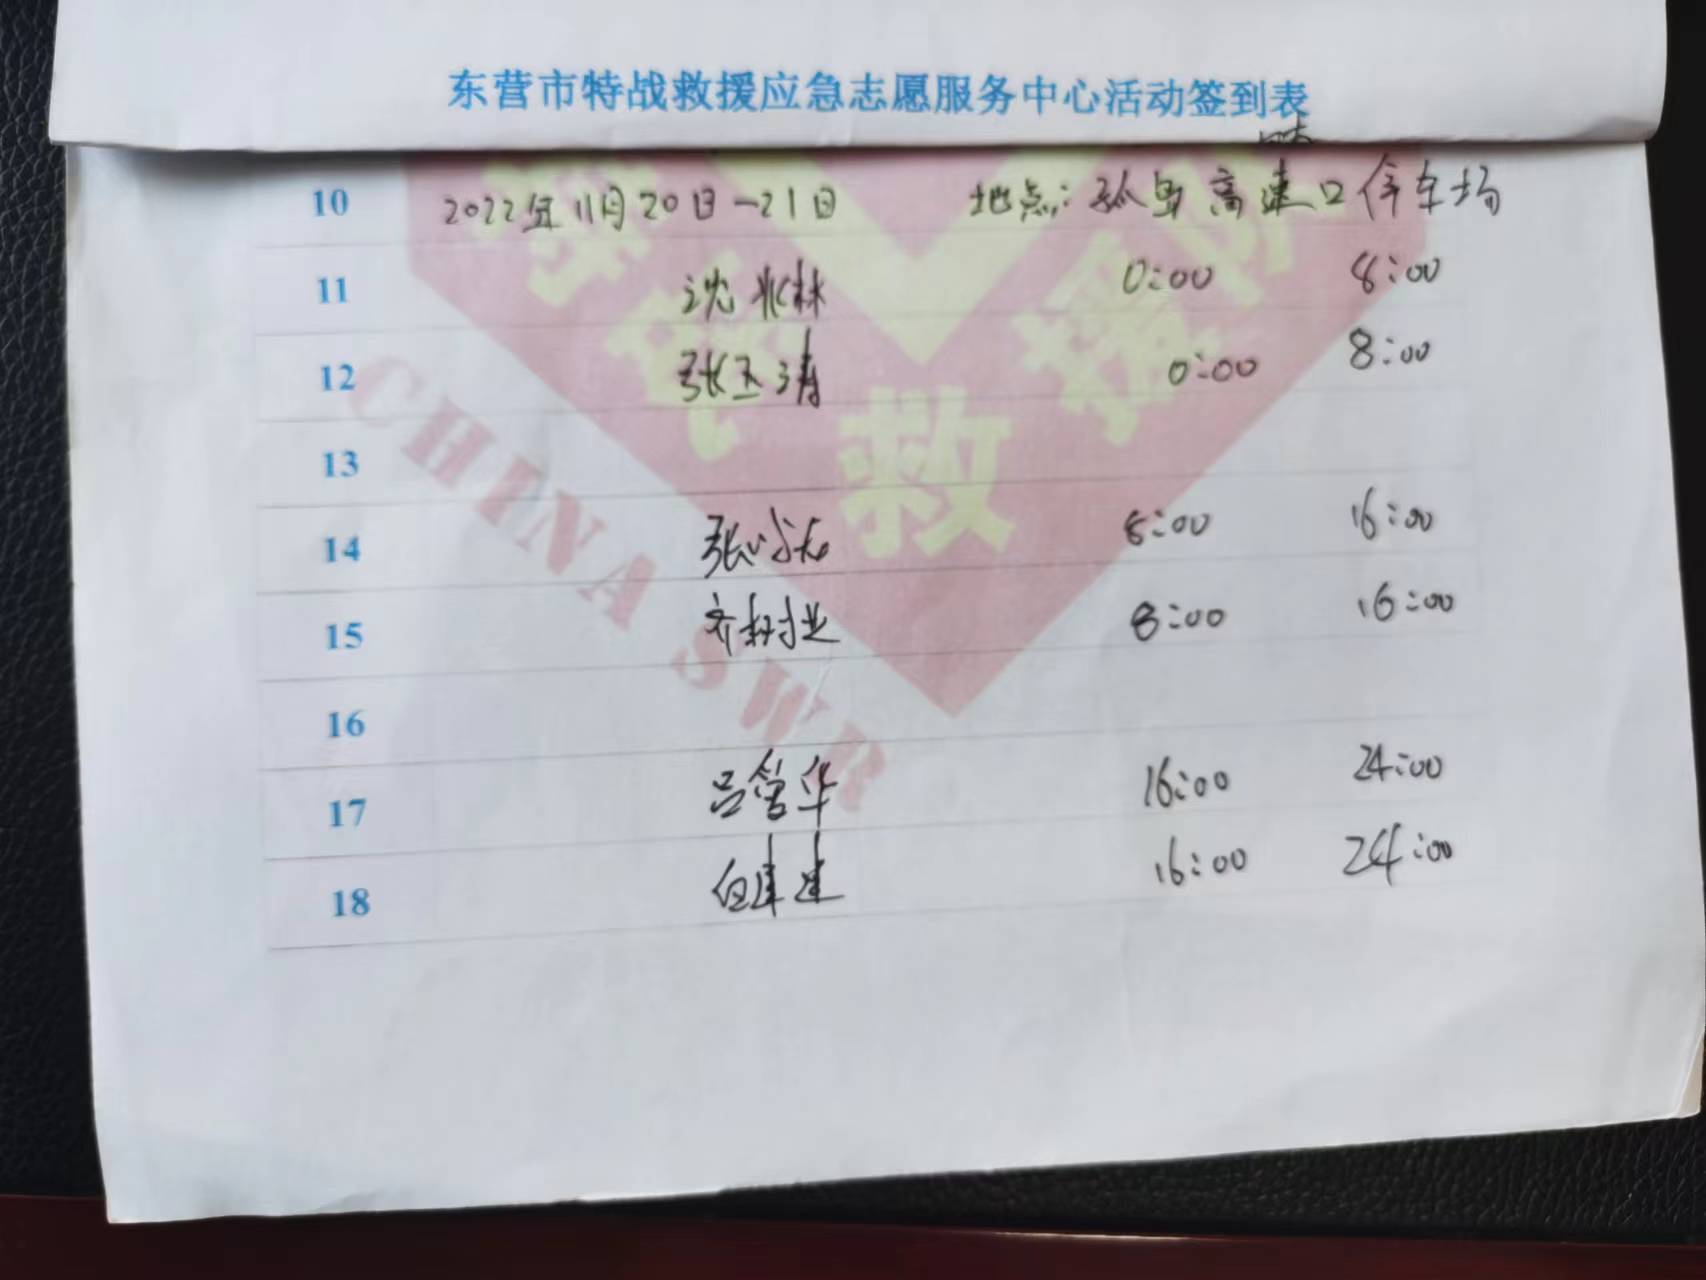 东营市特战救援应急志愿服务中心活动签到表
10 2022年11月20日-21日 地点:孤岛高速口停车场
11 沈兆林 0:00 8:00
12 张玉涛 0:00 8:00
13
14 张 8:00 16:00
15 齐树业 8:00 16:00
16
17 吕管华 16:00 24:00
18 白建建 16:00 24:00
特战救援队
CHINA SWR